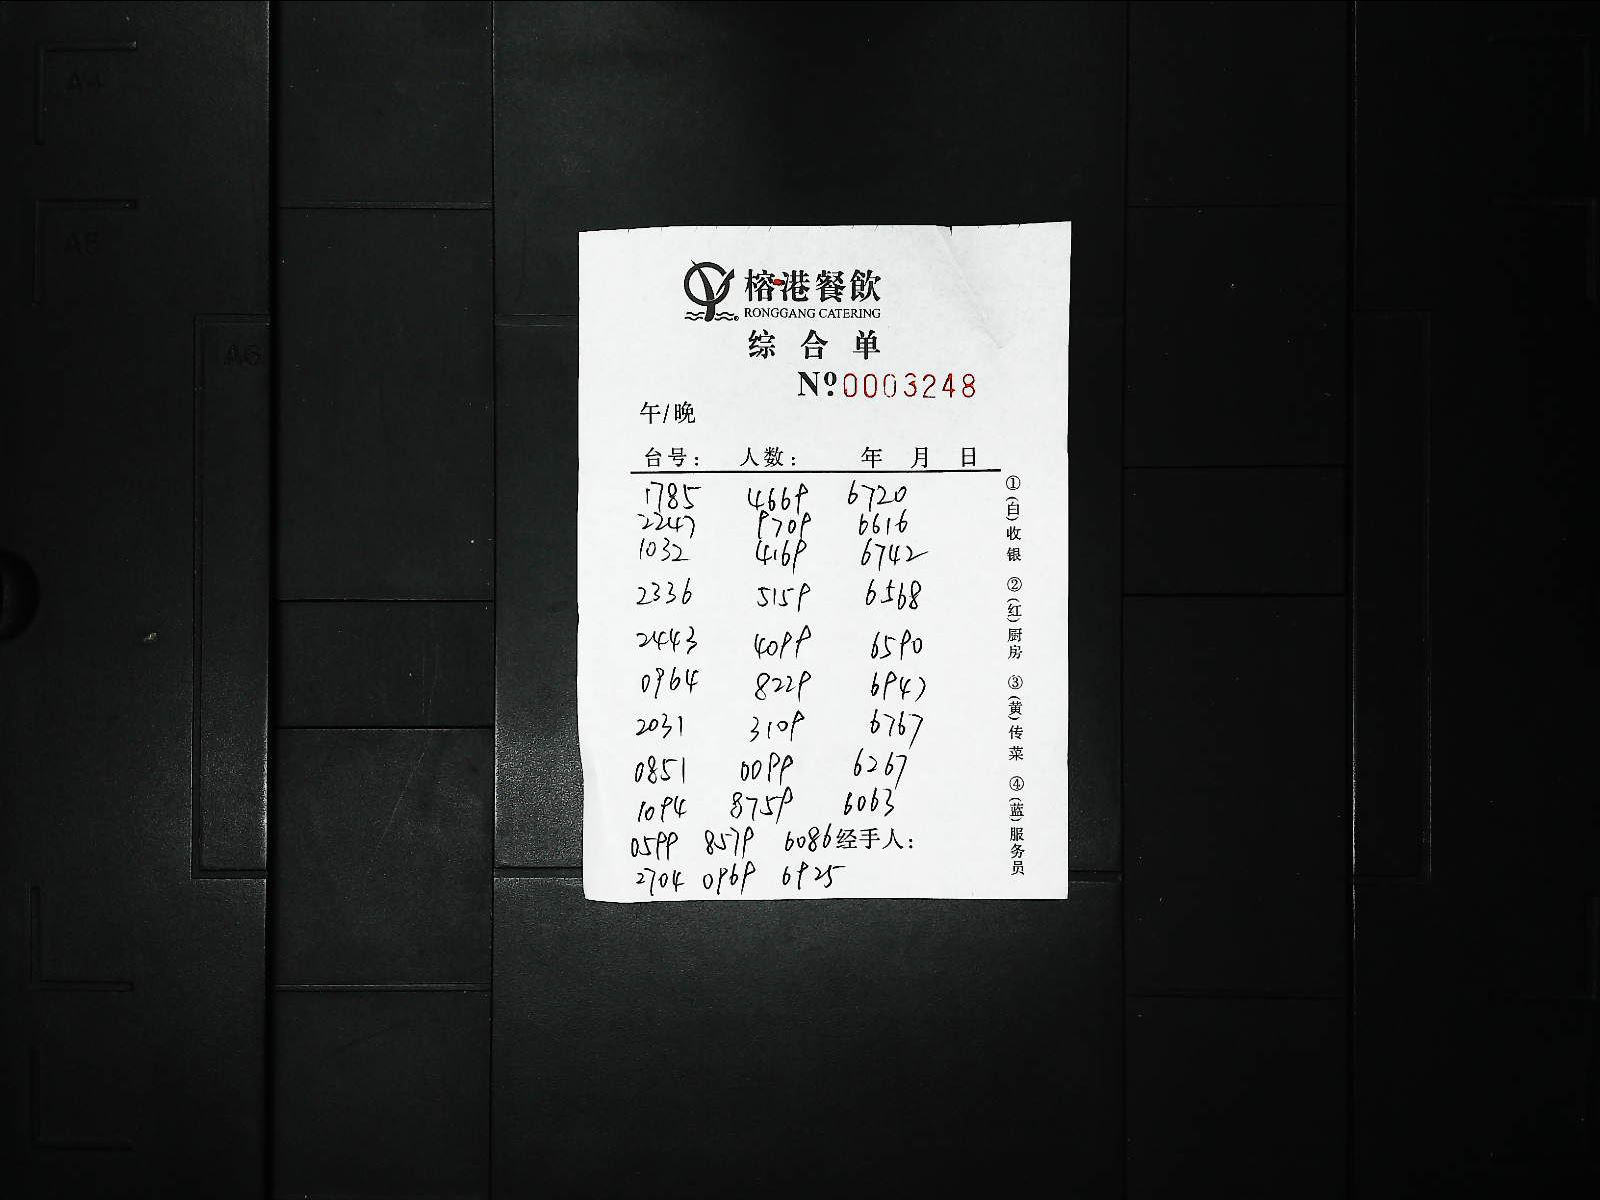 榕港餐飲
RONGGANG CATERING
综合单
№:0003248
午/晚
台号: 人数: 年 月 日
1785 4669 6720
2247 9709 6616
1032 4169 6742
2336 5159 6568
2443 4099 6590
0964 8229 6947
2031 3109 6767
0851 0099 6267
1094 8759 6063
0599 8579 6086 经手人:
2704 0969 6925
①(白)收银 ②(红)厨房 ③(黄)传菜 ④(蓝)服务员